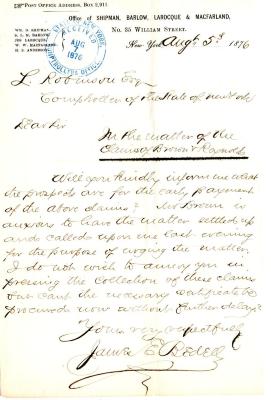 Post Office Address, Box 2,911.
Office of SHIPMAN, BARLOW, LAROCQUE & MACFARLAND,
No. 35 WILLIAM STREET.
WM. D. SHIPMAN.
S. L. M. BARLOW.
JOS. LAROCQUE.
W. W. MACFARLAND.
New York Augt 3d 1876
RECEIVED
AUG
1876
COMPTROLLER'S OFFICE
L. Robinson Esq
Comptroller of the State of New York
Dear Sir
In the matter of the
Claims of Brown &
Will you kindly inform me what
the prospects are for the early payment
of the above claims? Mr Brown is
anxious to have the matter settled up
and called upon me last evening
for the purpose of urging the matter.
I do not wish to annoy you in
pressing the collection of these claims
but cant the necessary certificate be
procured now without further delay?
Yours very respectfully
James E Bedell